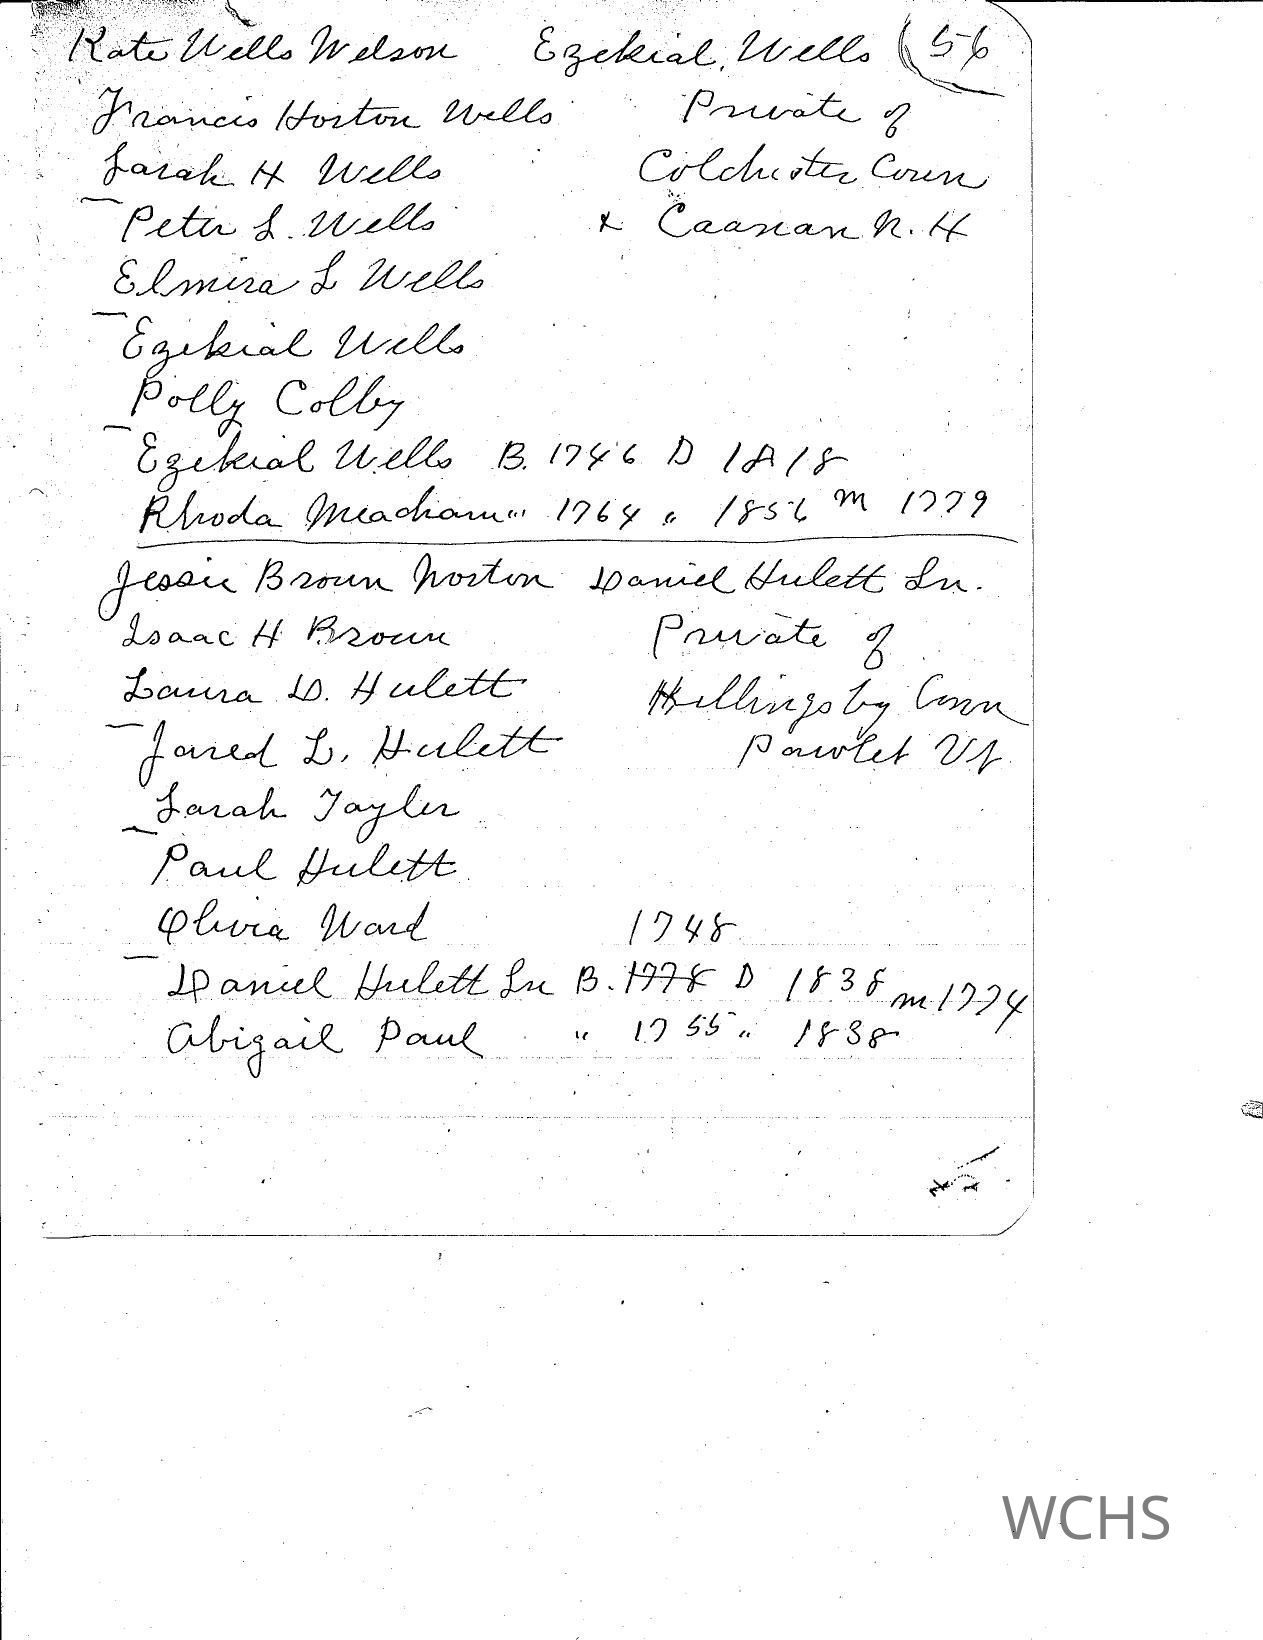 Kate Wells Welson Ezekial Wells 56
Francis Horton Wells Private of
Sarah H Wells Colchester Conn
Peter S. Wells & Caanan N. H
Elmira S Wells
Ezekial Wells
Polly Colby
Ezekial Wells B. 1746 D 1818
Rhoda Meacham " 1764 " 1856 m 1779
Jessie Brown Norton Daniel Hulett Sn.
Isaac H Brown Private of
Laura D. Hulett Killingsby Conn
Jared L. Hulett Pawlet Vt
Sarah Tayler
Paul Hulett
Olivia Ward 1748
Daniel Hulett Sn B. 1778 D 1838 m 1774
Abigail Paul " 1755 " 1838
WCHS